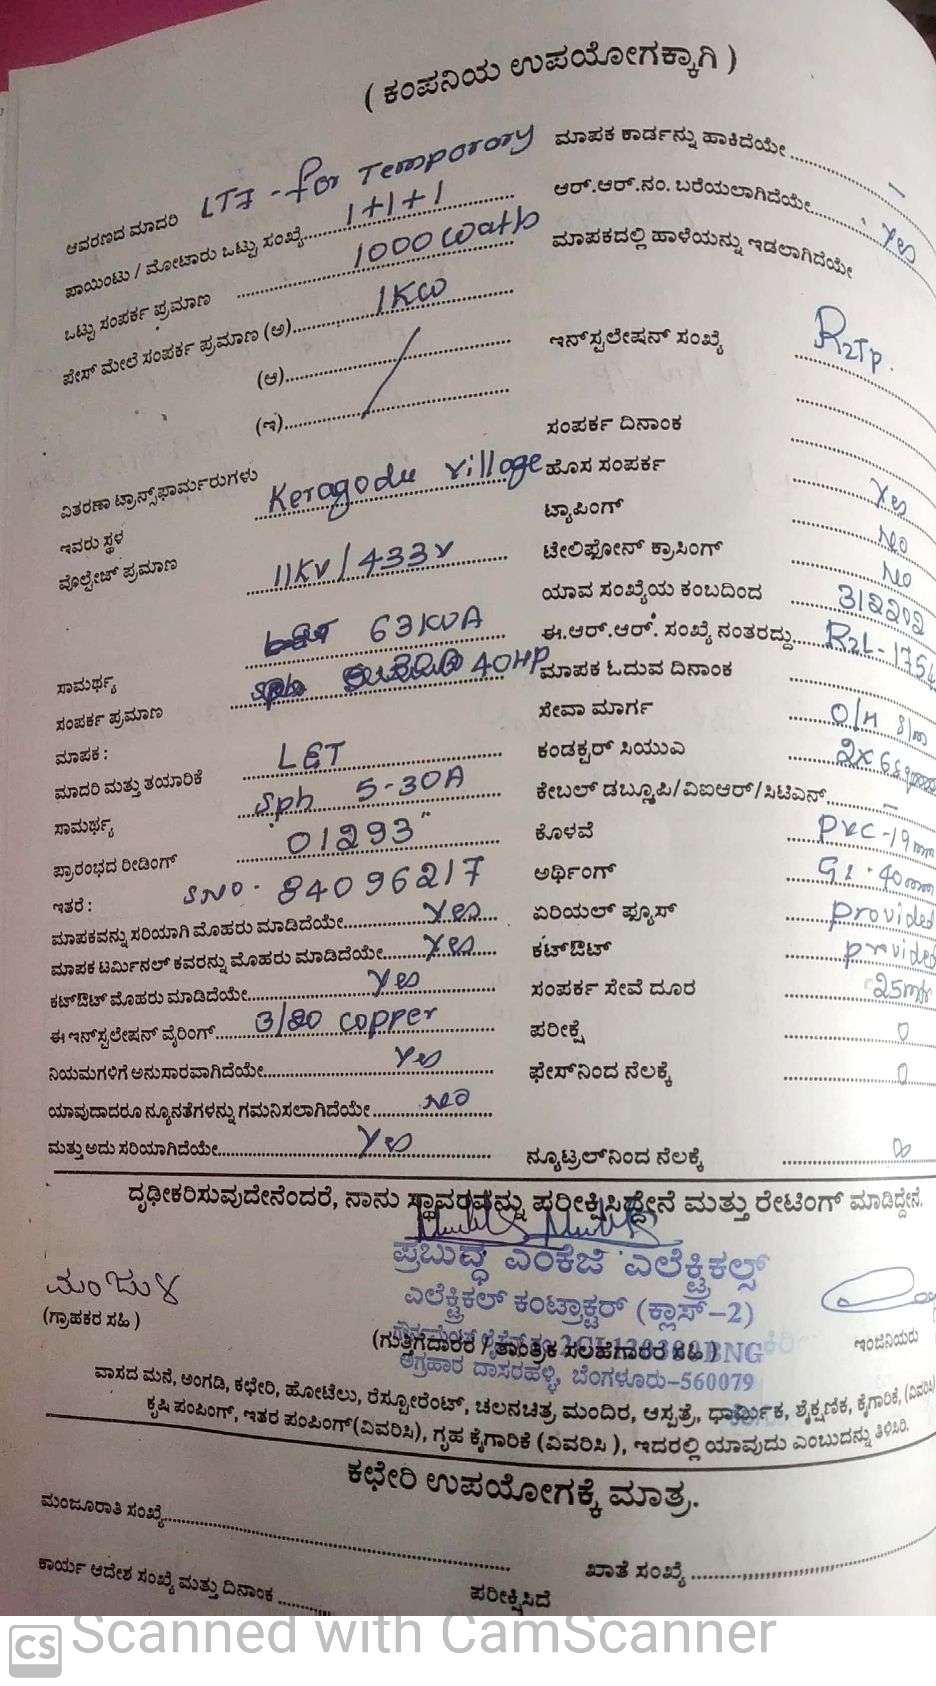 ( ಕಂಪನಿಯ ಉಪಯೋಗಕ್ಕಾಗಿ )
ಆವರಣದ ಮಾದರಿ LT7 - for Temporory
ಪಾಯಿಂಟು / ಮೋಟಾರು ಒಟ್ಟು ಸಂಖ್ಯೆ 1+1+1
ಒಟ್ಟು ಸಂಪರ್ಕ ಪ್ರಮಾಣ 1000 watts
ಪೇಸ್ ಮೇಲೆ ಸಂಪರ್ಕ ಪ್ರಮಾಣ (ಅ) 1KW
(ಆ)
(ಇ)
ವಿತರಣಾ ಟ್ರಾನ್ಸ್‌ಫಾರ್ಮರುಗಳು
ಇವರು ಸ್ಥಳ Keragodu village
ವೊಲ್ಟೇಜ್ ಪ್ರಮಾಣ 11KV / 433V
ಸಾಮರ್ಥ್ಯ 63KVA
ಸಂಪರ್ಕ ಪ್ರಮಾಣ 40HP
ಮಾಪಕ :
ಮಾದರಿ ಮತ್ತು ತಯಾರಿಕೆ L&T
ಸಾಮರ್ಥ್ಯ sph 5-30A
ಪ್ರಾರಂಭದ ರೀಡಿಂಗ್ 01293
ಇತರೆ : SNO - 84096217
ಮಾಪಕವನ್ನು ಸರಿಯಾಗಿ ಮೊಹರು ಮಾಡಿದೆಯೇ Yes
ಮಾಪಕ ಟರ್ಮಿನಲ್ ಕವರನ್ನು ಮೊಹರು ಮಾಡಿದೆಯೇ Yes
ಕಟ್‌ಔಟ್ ಮೊಹರು ಮಾಡಿದೆಯೇ Yes
ಈ ಇನ್‌ಸ್ಟಲೇಷನ್ ವೈರಿಂಗ್ 3/20 copper
ನಿಯಮಗಳಿಗೆ ಅನುಸಾರವಾಗಿದೆಯೇ Yes
ಯಾವುದಾದರೂ ನ್ಯೂನತೆಗಳನ್ನು ಗಮನಿಸಲಾಗಿದೆಯೇ NO
ಮತ್ತು ಅದು ಸರಿಯಾಗಿದೆಯೇ Yes
ಮಾಪಕ ಕಾರ್ಡನ್ನು ಹಾಕಿದೆಯೇ –
ಆರ್.ಆರ್.ನಂ. ಬರೆಯಲಾಗಿದೆಯೇ Yes
ಮಾಪಕದಲ್ಲಿ ಹಾಳೆಯನ್ನು ಇಡಲಾಗಿದೆಯೇ
ಇನ್‌ಸ್ಟಲೇಷನ್ ಸಂಖ್ಯೆ R2TP.
ಸಂಪರ್ಕ ದಿನಾಂಕ
ಹೊಸ ಸಂಪರ್ಕ Yes
ಟ್ಯಾಪಿಂಗ್ NO
ಟೇಲಿಫೋನ್ ಕ್ರಾಸಿಂಗ್ NO
ಯಾವ ಸಂಖ್ಯೆಯ ಕಂಬದಿಂದ 312202
ಈ.ಆರ್.ಆರ್. ಸಂಖ್ಯೆ ನಂತರದ್ದು R2L-1754
ಮಾಪಕ ಓದುವ ದಿನಾಂಕ
ಸೇವಾ ಮಾರ್ಗ O/H
ಕಂಡಕ್ಟರ್ ಸಿಯುಎ
ಕೇಬಲ್ ಡಬ್ಲೂಪಿ/ವಿಐಆರ್/ಸಿಟಿಎಸ್ –
ಕೊಳವೆ PVC-19mm
ಅರ್ಥಿಂಗ್ GI-40mm
ಏರಿಯಲ್ ಫ್ಯೂಸ್ Provided
ಕಟ್‌ಔಟ್ provided
ಸಂಪರ್ಕ ಸೇವೆ ದೂರ 25mtr
ಪರೀಕ್ಷೆ 0
ಫೇಸ್‌ನಿಂದ ನೆಲಕ್ಕೆ 0
ನ್ಯೂಟ್ರಲ್‌ನಿಂದ ನೆಲಕ್ಕೆ ∞
ದೃಢೀಕರಿಸುವುದೇನೆಂದರೆ, ನಾನು ಸ್ಥಾವರವನ್ನು ಪರೀಕ್ಷಿಸಿದ್ದೇನೆ ಮತ್ತು ರೇಟಿಂಗ್ ಮಾಡಿದ್ದೇನೆ.
ಪ್ರಬುದ್ಧ ಎಂಕೆಜಿ ಎಲೆಕ್ಟ್ರಿಕಲ್ಸ್
ಎಲೆಕ್ಟ್ರಿಕಲ್ ಕಂಟ್ರಾಕ್ಟರ್ (ಕ್ಲಾಸ್-2)
ಮಂಜುಳ
(ಗ್ರಾಹಕರ ಸಹಿ)
(ಗುತ್ತಿಗೆದಾರರ / ತಾಂತ್ರಿಕ ಸಲಹೆಗಾರರ ಸಹಿ)
ಇಂಜಿನಿಯರು
ಅಗ್ರಹಾರ ದಾಸರಹಳ್ಳಿ, ಬೆಂಗಳೂರು-560079
ವಾಸದ ಮನೆ, ಅಂಗಡಿ, ಕಛೇರಿ, ಹೋಟೆಲು, ರೆಸ್ಟೋರೆಂಟ್, ಚಲನಚಿತ್ರ ಮಂದಿರ, ಆಸ್ಪತ್ರೆ, ಧಾರ್ಮಿಕ, ಶೈಕ್ಷಣಿಕ, ಕೈಗಾರಿಕೆ, (ವಿವರಿಸಿ)
ಕೃಷಿ ಪಂಪಿಂಗ್, ಇತರ ಪಂಪಿಂಗ್ (ವಿವರಿಸಿ), ಗೃಹ ಕೈಗಾರಿಕೆ (ವಿವರಿಸಿ), ಇದರಲ್ಲಿ ಯಾವುದು ಎಂಬುದನ್ನು ತಿಳಿಸಿರಿ.
ಕಛೇರಿ ಉಪಯೋಗಕ್ಕೆ ಮಾತ್ರ.
ಮಂಜೂರಾತಿ ಸಂಖ್ಯೆ
ಖಾತೆ ಸಂಖ್ಯೆ
ಕಾರ್ಯ ಆದೇಶ ಸಂಖ್ಯೆ ಮತ್ತು ದಿನಾಂಕ
ಪರೀಕ್ಷಿಸಿದೆ
CS Scanned with CamScanner